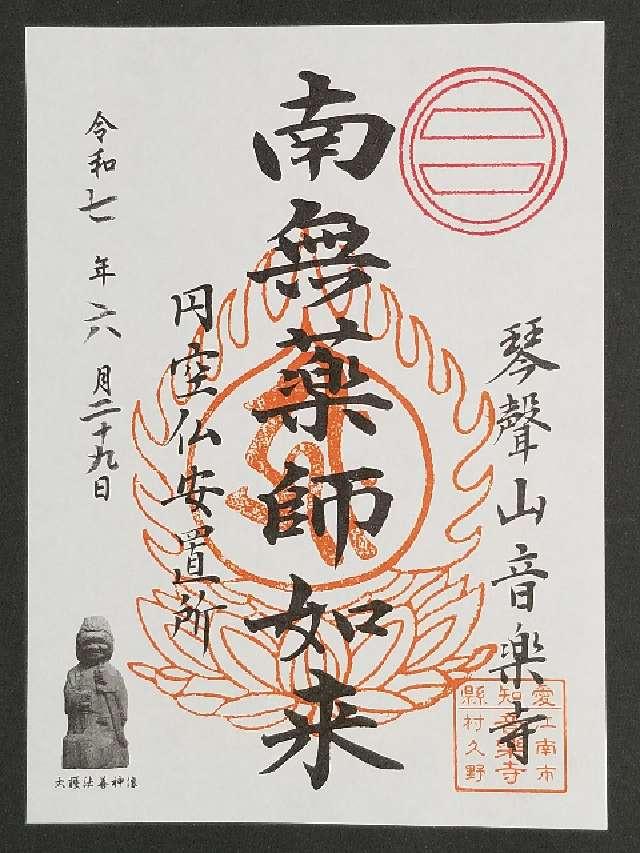 琴聲山音楽寺
南無薬師如来
円空仏安置所
令和七年六月二十九日
愛江南市
知音楽寺
縣村久野